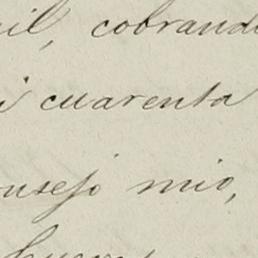 il, cobrand
i cuarenta
nsejo mio,